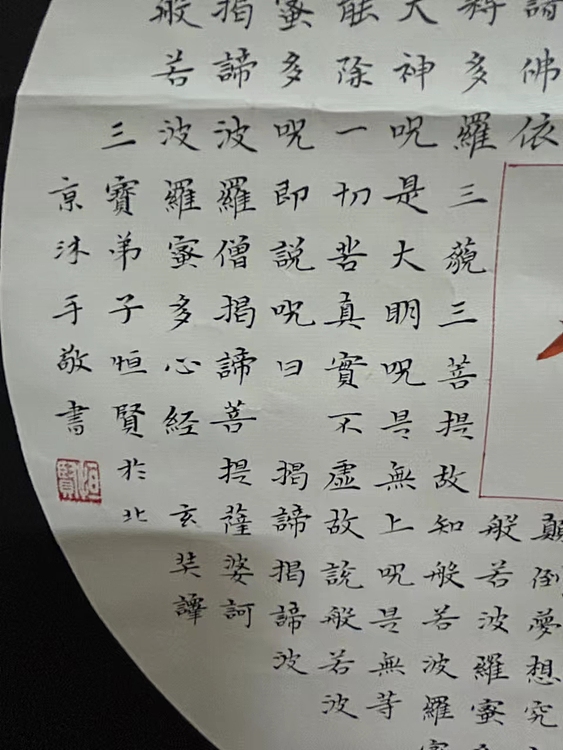 諸佛依
顛倒夢想究
般若波羅蜜
耨多羅三藐三菩提故知般若波羅蜜
大神呪是大明呪是無上呪是無等
能除一切苦真實不虛故說般若波
蜜多呪即說呪曰 揭諦揭諦波
揭諦波羅僧揭諦菩提薩婆訶
般若波羅蜜多心経 玄奘譯
三寶弟子恒賢於北
京沐手敬書
恒賢